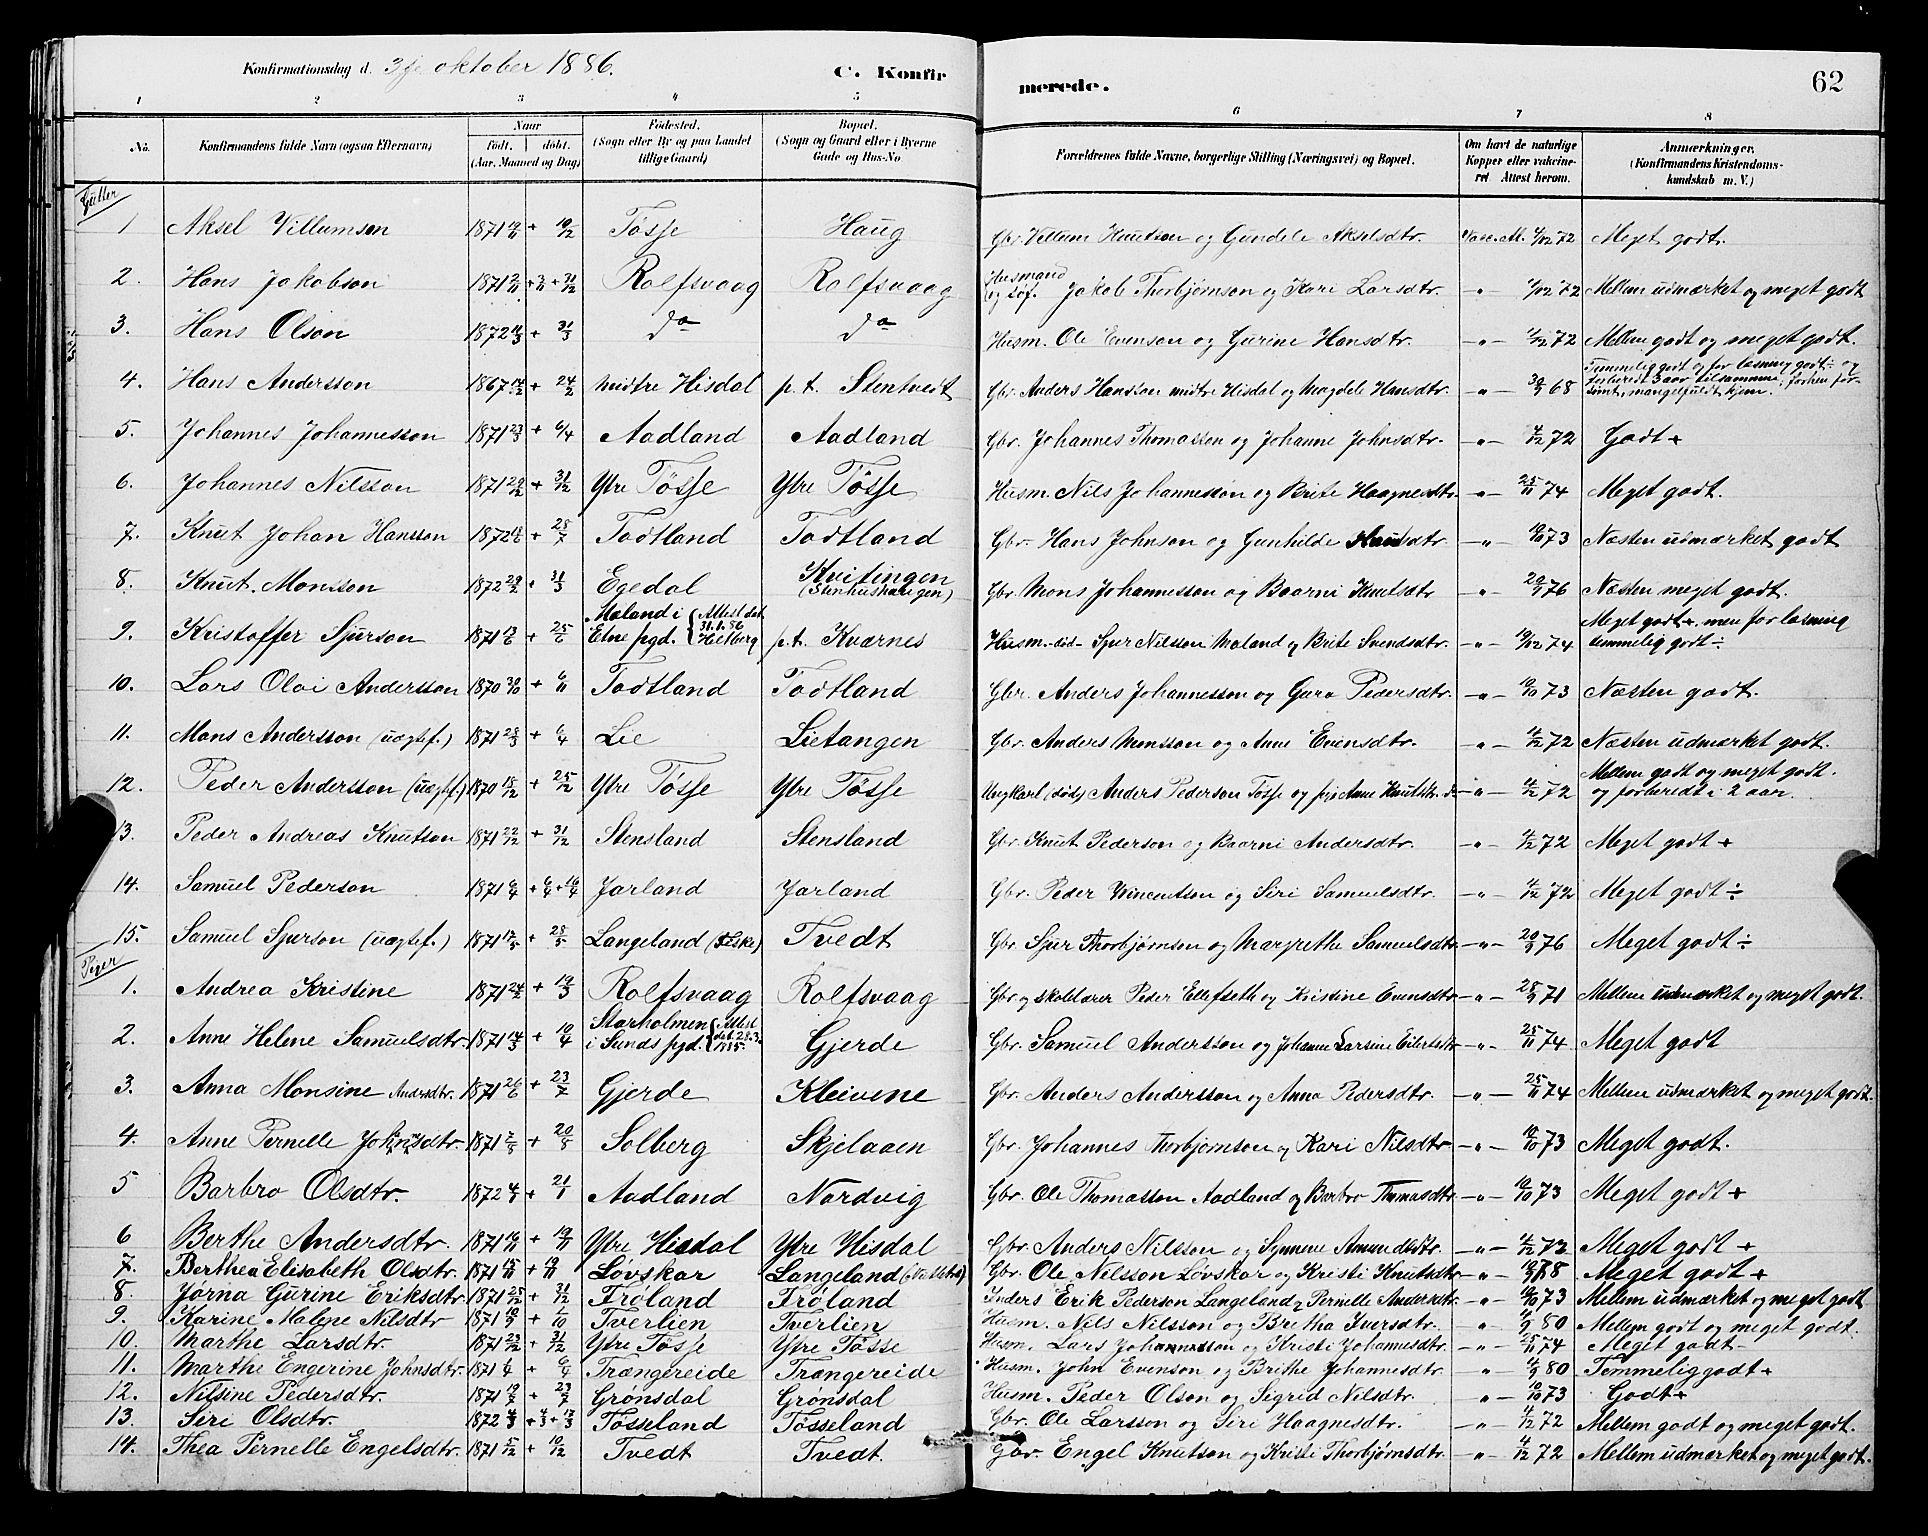 Konfirmationsdag d. 3je oktober 1886. C. Konfirmerede. 62
1 2 3 4 5 6 7 8
No. Konfirmandens fulde Navn (ogsaa Efternavn) Naar født. døbt. (Aar, Maaned og Dag) Fødested. (Sogn eller By og paa Landet tillige Gaard) Bopæl. (Sogn og Gaard eller i Byerne Gade og Hus-No Forældrenes fulde Navne, borgerlige Stilling (Næringsvei) og Bopæl. Om havt de naturlige Kopper eller vakcineret Attest herom. Anmærkninger. (Konfirmandens Kristendomskundskab m. V.)
Gutter
1 Aksel Villumson 1871 + 10/12 Tøsse Haug Gbr. Villum Knutson og Gundele Akselsdtr. Vacc. A. 4/12 72 Meget godt.
2. Hans Jakobson 1871 + + 31/12 Rolfsvaag Rolfsvaag Husmand og Jakob Thorbjørnson og Kari Larsdtr. -"- 4/12 72 Mellem udmærket og meget godt
3. Hans Olson 1872 + 31/3 do do Husm. Ole Evenson og Gurine Hansdtr. -"- 4/12 72 Mellem godt og meget godt.
4. Hans Andersson 1867 + 24/2 midtre Hisdal p.t. Stentvedt Gbr. Anders Hansson midtre Hisdal og Magdele Hansdtr. -"- 68 Temmelig godt og for læsning godt ÷ og forberedt 3 aar tilsammen, forhen forsømt, mangelfuldt hjem.
5. Johannes Johannesson 1871 23/3 + 6/4 Aadland Aadland Gbr. Johannes Thomasson og Johanne Johnsdtr. -"- 4/12 72 Godt +
6. Johannes Nilsson 1871 + 31/12 Ytre Tøsse Ytre Tøsse Husm. Nils Johannesson og Brite Haagnesdtr. -"- 25/11 74 Meget godt.
7. Knut Johan Hansson 1872 + 28/7 Todtland Todtland Gbr. Hans Johnson og Gunhilde -"- 10/10 73 Næsten udmærket godt
8. Knut Monsson 1872 29/2 + 31/3 Egedal Kvitingen (Stenhushaugen) Gbr. Mons Johannesson og Baarni Knutsdtr -"- 76 Næsten meget godt.
9. Kristoffer Sjurson 1871 + 25/6 Maland i Etne pgd. (Attest dat. 31.1.86 Helberg p.t. Kvarnes Husm. død Sjur Nilsson Maland og Brite Svendsdtr. -"- 74 Meget godt +, men for læsning temmelig godt ÷
10. Lars Olai Andersson 1870 + 6/11 Todtland Todtland Gbr. Anders Johannesson og Guro Pedersdtr. -"- 10/10 73 Næsten godt.
11. Mons Andersson (uægtef.) 1871 28/3 + 6/4 Lie Lietangen Gbr. Anders Monsson og Anne Evensdtr. -"- 4/12 72 Næsten udmærket godt.
12. Peder Andersson (uægtef.) 1870 15/12 + 25/12 Ytre Tøsse Ytre Tøsse Ungkarl (død) Anders Pederson Tøsse og pige Anne Knutsdtr. -"- 4/12 72 Mellem godt og meget godt. og forberedt i 2 aar.
13. Peder Andreas Knutson 1871 22/12 + 31/12 Stensland Stensland Gbr. Knut Pederson og Baarni Andersdtr. -"- 4/12 72 Meget godt +
14. Samuel Pederson 1871 6/4 + 6/4 + 16/4 Jarland Jarland Gbr. Peder Vincentson og Siri Samuelsdtr. -"- 4/12 72 Meget godt ÷
15. Samuel Sjurson (uægtef.) 1871 17/5 + 28/5 Langeland Tvedt Gbr Sjur Thorbjørnson og Margrethe Samuelsdtr -"- 76 Meget godt ÷
Piger
1. Andrea Kristine 1871 24/2 + 19/3 Rolfsvaag Rolfsvaag Gbr og skolelærer Peder Ellefseth og Kristine Evensdtr -"- 71 Mellem udmærket og meget godt.
2. Anne Helene Samuelsdtr. 1871 14/3 + 10/4 Starholmen i Sunds pgd. (Attest dat. 28.3. 1885. Gjerde Gbr. Samuel Andersson og Johanne Larsine Eilertsdtr -"- 25/11 74 Meget godt
3. Anna Monsine Andersdtr. 1871 26/6 + 23/7 Gjerde Kleivene Gbr. Anders Andersson og Anna Pedersdtr. -"- 25/11 74 Mellem udmærket og meget godt.
4. Anne Pernelle Johnsdtr. 1871 + 20/8 Solberg Skjelaaen Gbr. Johannes Thorbjørnson og Kari Nilsdtr -"- 10/10 73 Meget godt.
5 Barbro Olsdtr. 1872 + 21/1 Aadland Nordvig Gbr. Ole Thomasson Aadland og Barbro Thomasdtr -"- 10/10 73 Meget godt +
6 Berthe Andersdtr. 1871 + 19/11 Ytre Hisdal Ytre Hisdal Gbr. Anders Nilsson og Synneve Amundsdtr. -"- 4/12 72 Meget godt +
7. Berthea Elisabeth Olsdtr. 1871 + 19/11 Løvskar Langeland Gbr. Ole Nilsson Løvskar og Kristi Knutsdtr -"- Meget godt +
8. Jørna Gurine Eriksdtr. 1871 25/12 + 31/12 Frøland Frøland Inders Erik Pederson Langeland og Pernelle Andersdtr. -"- 10/10 73 Mellem udmærket og meget godt
9. Karine Malene Nilsdtr 1871 + 1/10 Tverlien Tverlien Husm. Nils Nilsson og Bretha Iversdtr. -"- 80 Mellem godt og meget godt.
10. Marthe Larsdtr. 1871 23/12 + 31/12 Ytre Tøsse Ytre Tøsse Husm. Lars Johannesson og Kristi Johannesdtr -"- 25/11 74 Meget godt -
11. Marthe Engerine Johnsdtr. 1871 + 6/4 Trængereide Trængereide Husm. John Evenson og Brithe Johannesdtr. " 80 Temmelig godt +
12. Nilsine Pedersdtr. 1871 + 23/7 Grønsdal Grønsdal Husm. Peder Olson og Sigrid Nilsdtr. " 10/10 73 Godt +
13. Siri Olsdtr. 1872 4/3 + 4/3 + 17/3 Tøsseland Tøsseland Gbr. Ole Larsson og Siri Haagnesdtr. -"- 4/12 72 Mellem godt og meget godt.
14. Thea Pernelle Engelsdtr. 1871 5/12 + 10/12 Tvedt Tvedt. Gbr. Engel Knutson og Kristi Thorbjørnsdtr. -"- 4/12 72 Mellem udmærket og meget godt.